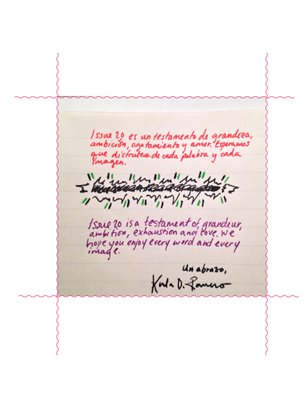 Issue 20 es un testamento de grandeza,
ambición, agotamiento y amor. Esperamos
que disfruten de cada palabra y cada
imagen.
Issue 20 is a testament of grandeur,
ambition, exhaustion and love. We
hope you enjoy every word and every
image.
Un abrazo,
Karla D. Romero